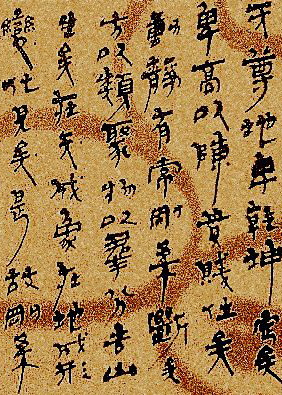 天尊地卑乾坤定矣
卑高以陳貴賤位矣
動靜有常剛柔斷矣
方以類聚物以羣分吉凶
生矣在天成象在地成形
變化見矣是故剛柔